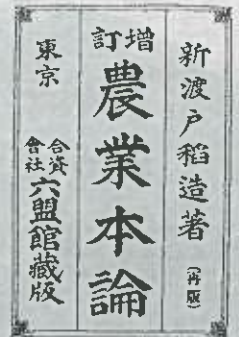 新渡戸稲造著（再版）
增訂
農業本論
東京
合資會社六盟館藏版